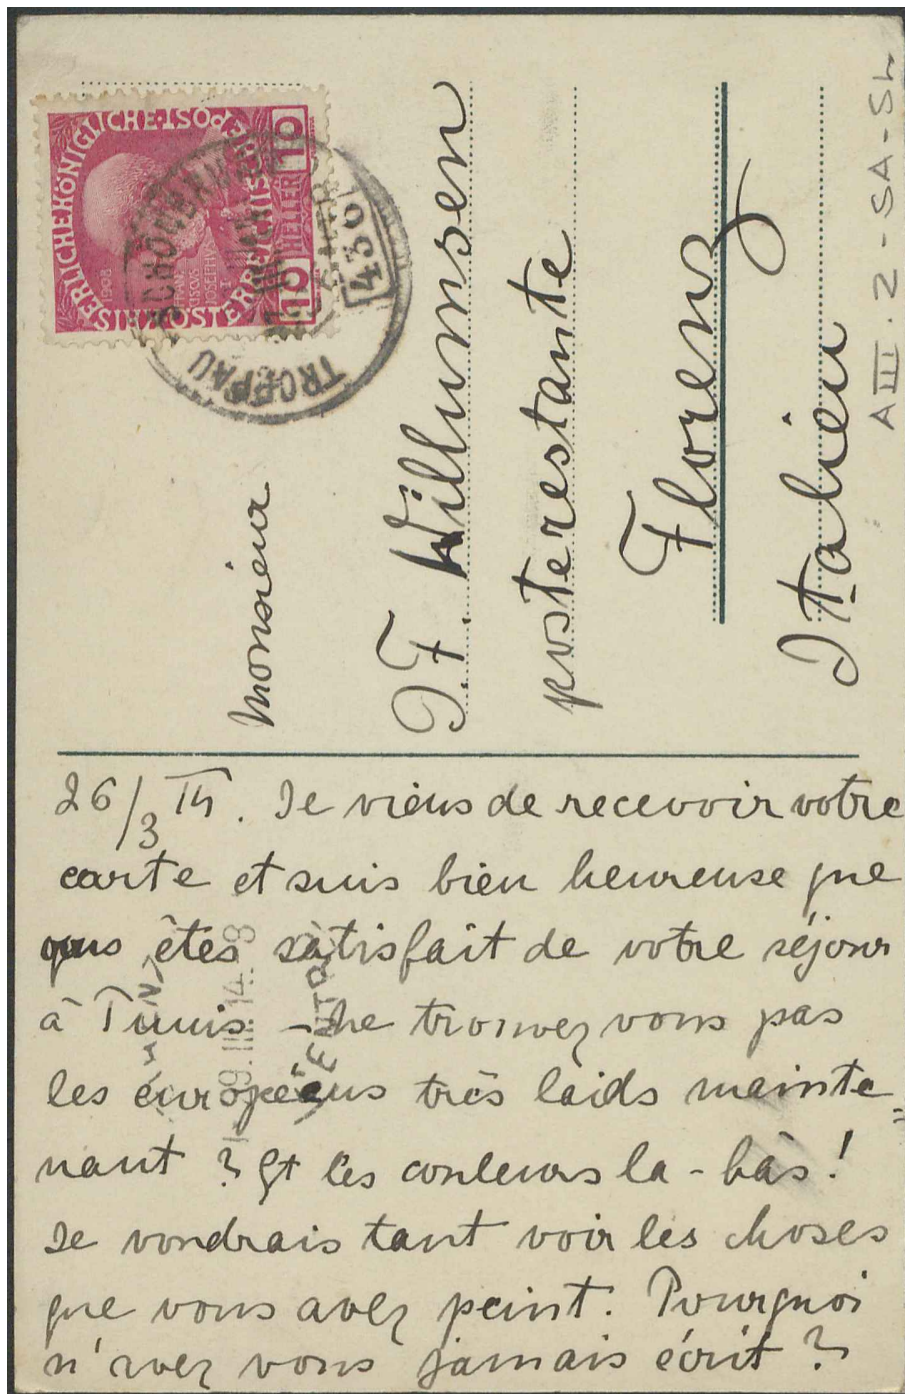 KAISERLICHE KÖNIGLICHE ÖSTERREICHISCHE POST
1908
JOSEPHVS
10 HELLER 10
TROPPAU
430
A III. 2 - SA - SL
Monsieur
J. F. Willumsen
posterestante
Florenz
Italien
26/3 14. Je viens de recevoir votre
carte et suis bien heureuse que
vous êtes satisfait de votre séjour
à Tunis. - Ne trouvez vous pas
les européens très laids mainte
nant ? Et les couleurs la-bàs!
Je voudrais tant voir les choses
que vous avez peint. Pourquoi
n'avez vous jamais écrit ?
29.III.14. 8